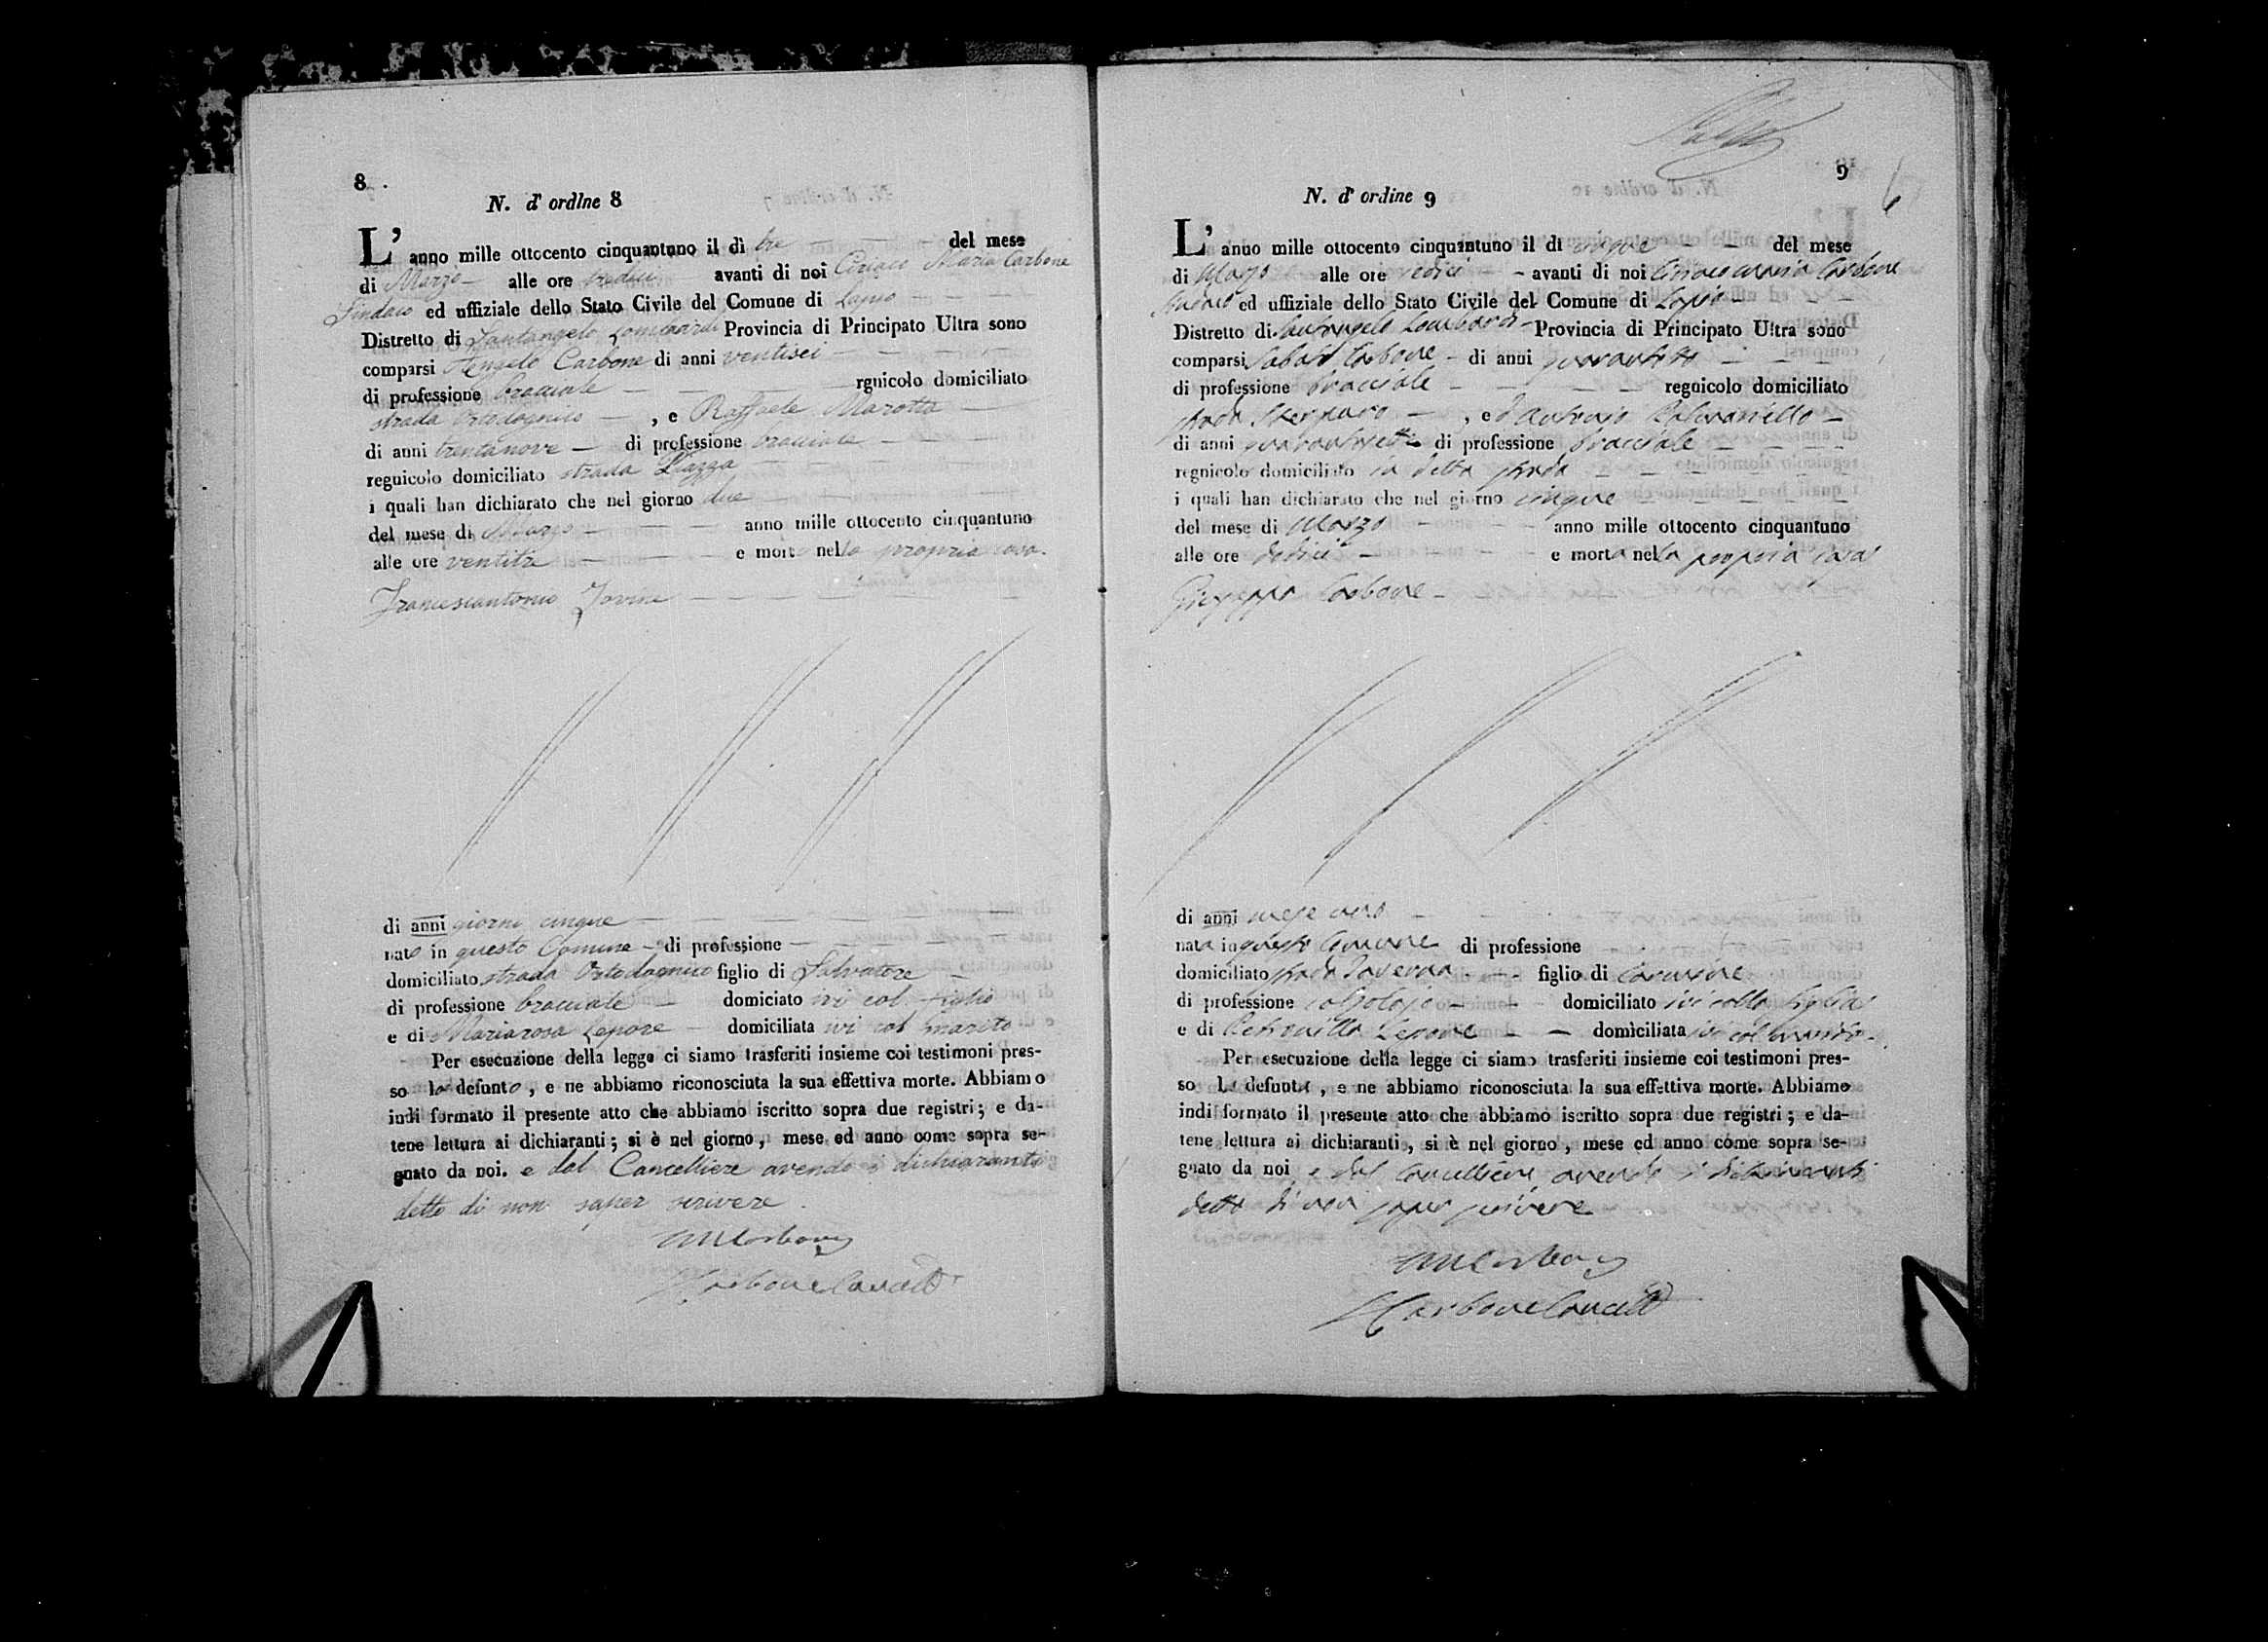 8
N. d' ordine 8
L' anno mille ottocento cinquantuno il dì tre del mese
di Marzo alle ore tredici avanti di noi Ciriaco Maria Carbone
Sindaco ed uffiziale dello Stato Civile del Comune di Lapio
Distretto di Santangelo Lombardi Provincia di Principato Ultra sono
comparsi Angelo Carbone di anni ventisei
di professione bracciale rgnicolo domiciliato
strada Ortodognico , e Raffaele Marotta
di anni trentanove di professione bracciale
regnicolo domiciliato strada Piazza
i quali han dichiarato che nel giorno due
del mese di Marzo anno mille ottocento cinquantuno
alle ore ventitre e morto nella propria casa.
Francescantonio Iovine
di anni giorni cinque
nato in questo Comune di professione
domiciliato strada Ortodognico figlio di Salvatore
di professione bracciale domiciato ivi col figlio
e di Mariarosa Lepore domiciliata ivi col marito
Per esecuzione della legge ci siamo trasferiti insieme coi testimoni pres-
so lo defunto , e ne abbiamo riconosciuta la sua effettiva morte. Abbiamo
indi formato il presente atto che abbiamo iscritto sopra due registri ; e da-
tene lettura ai dichiaranti ; si è nel giorno , mese ed anno come sopra se-
gnato da noi. e dal Cancelliere avendo i dichiaranti
detto di non saper scrivere.
Carbone Cancell
9
6
N. d' ordine 9
L' anno mille ottocento cinquintuno il dì cinque del mese
di Marzo alle ore sedici avanti di noi Ciriaco Maria Carbone
Sindaco ed uffiziale dello Stato Civile del Comune di Lapio
Distretto di Santangelo Lombardi Provincia di Principato Ultra sono
comparsi Sabato Carbone di anni quarantotto
di professione bracciale regnicolo domiciliato
strada , e d'Antonio
di anni quarantasette di professione bracciale
regnicolo domiciliato in detta strada
i quali han dichiarato che nel giorno cinque
del mese di Marzo anno mille ottocento cinquantuno
alle ore dodici e morta nella propria casa
Giuseppa Carbone
di anni mese uno
nata in questo Comune di professione
domiciliato strada Taverna figlio di Carmine
di professione calzolajo domiciliato ivi colla figlia
e di Petronilla Lepore domiciliata ivi col marito
Per esecuzione della legge ci siamo trasferiti insieme coi testimoni pres-
so la defunta , e ne abbiamo riconosciuta la sua effettiva morte. Abbiamo
indi formato il presente atto che abbiamo iscritto sopra due registri ; e da-
tene lettura ai dichiaranti , si è nel giorno , mese ed anno come sopra se-
gnato da noi e dal Cancelliere avendo i dichiaranti
detto di non saper scrivere
Carbone Cancell